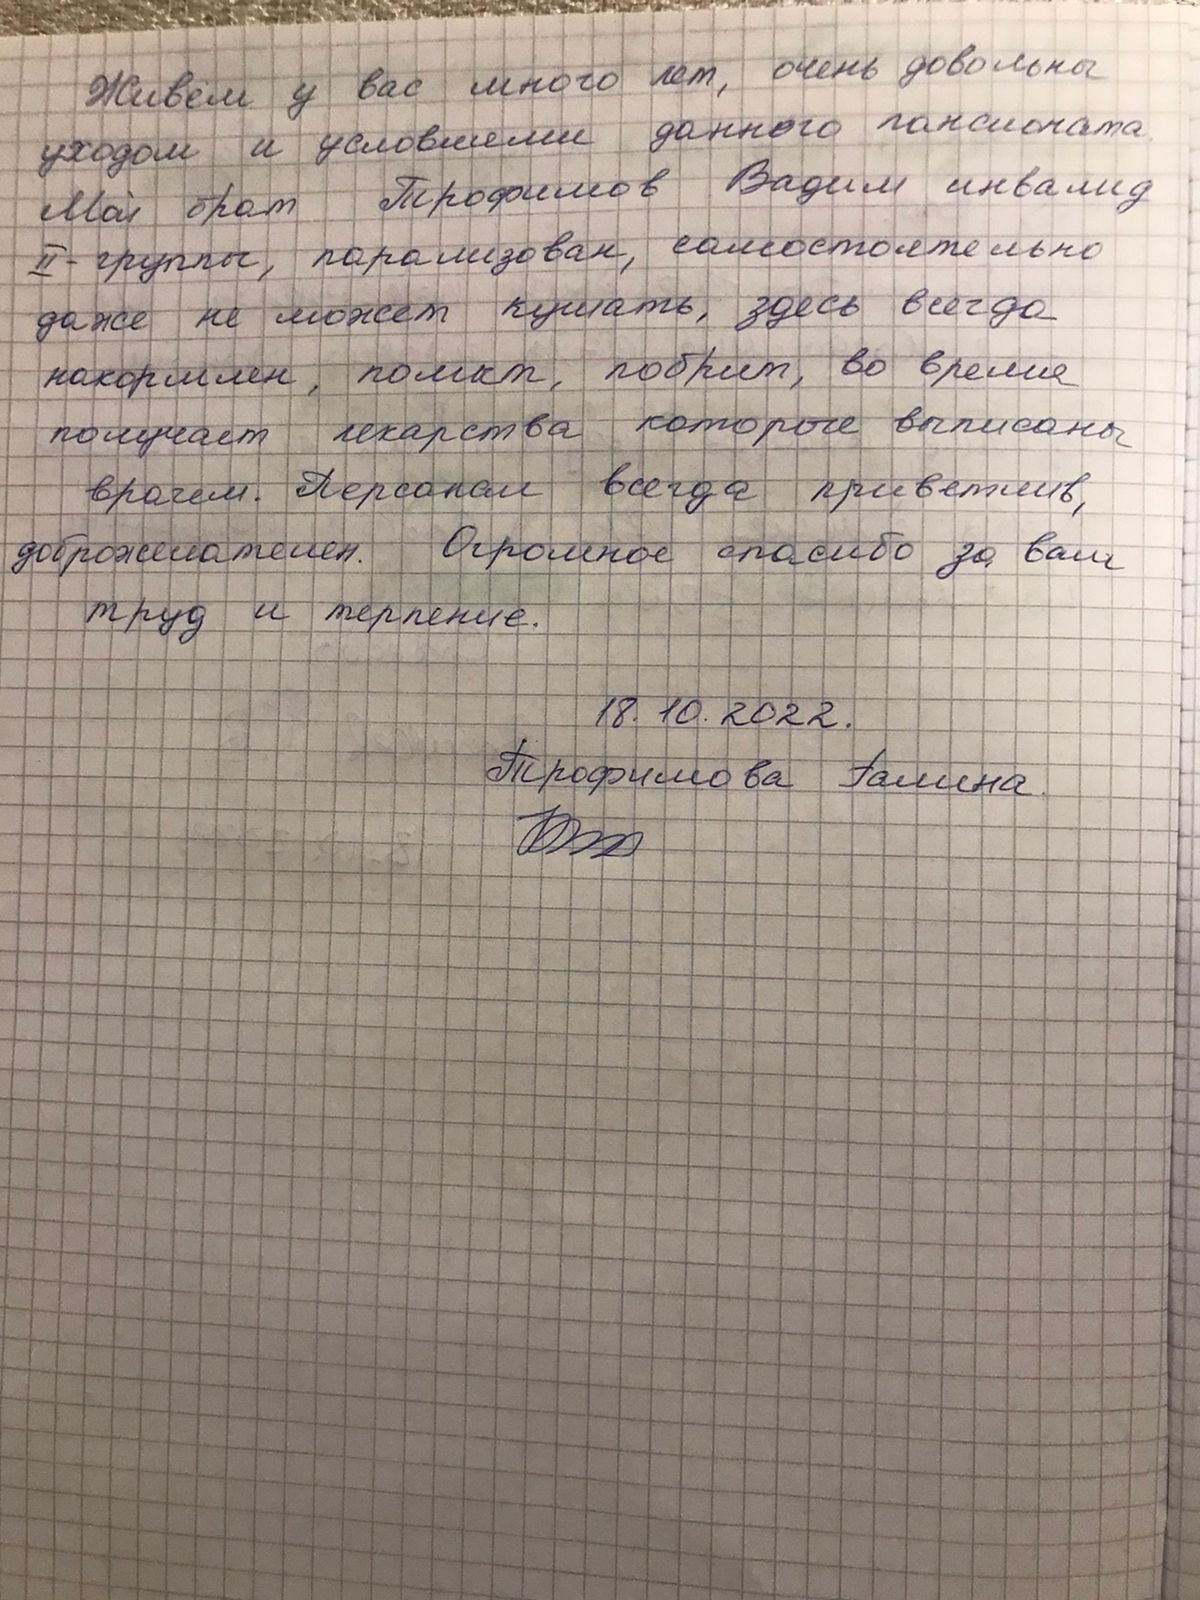 Живём у вас много лет, очень довольны
уходом и условиями данного пансионата.
Мой брат Трофимов Вадим инвалид
II-группы, парализован, самостоятельно
даже не может кушать, здесь всегда
накормлен, помыт, побрит, во время
получает лекарства которые выписаны
врачем. Персонал всегда приветлив,
доброжелателен. Огромное спасибо за ваш
труд и терпение.
18.10.2022.
Трофимова Галина